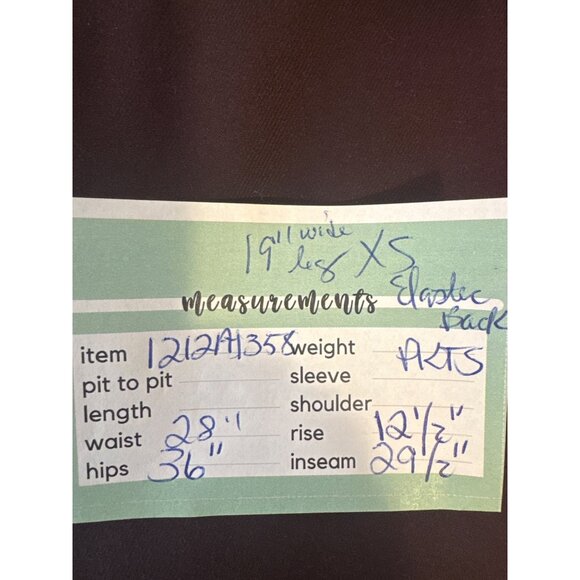 19" wide
leg XS
measurements Elastec
Back
item 1212A1358 weight
pit to pit sleeve
length shoulder
waist 28" rise 12 1/2"
hips 36" inseam 29 1/2"